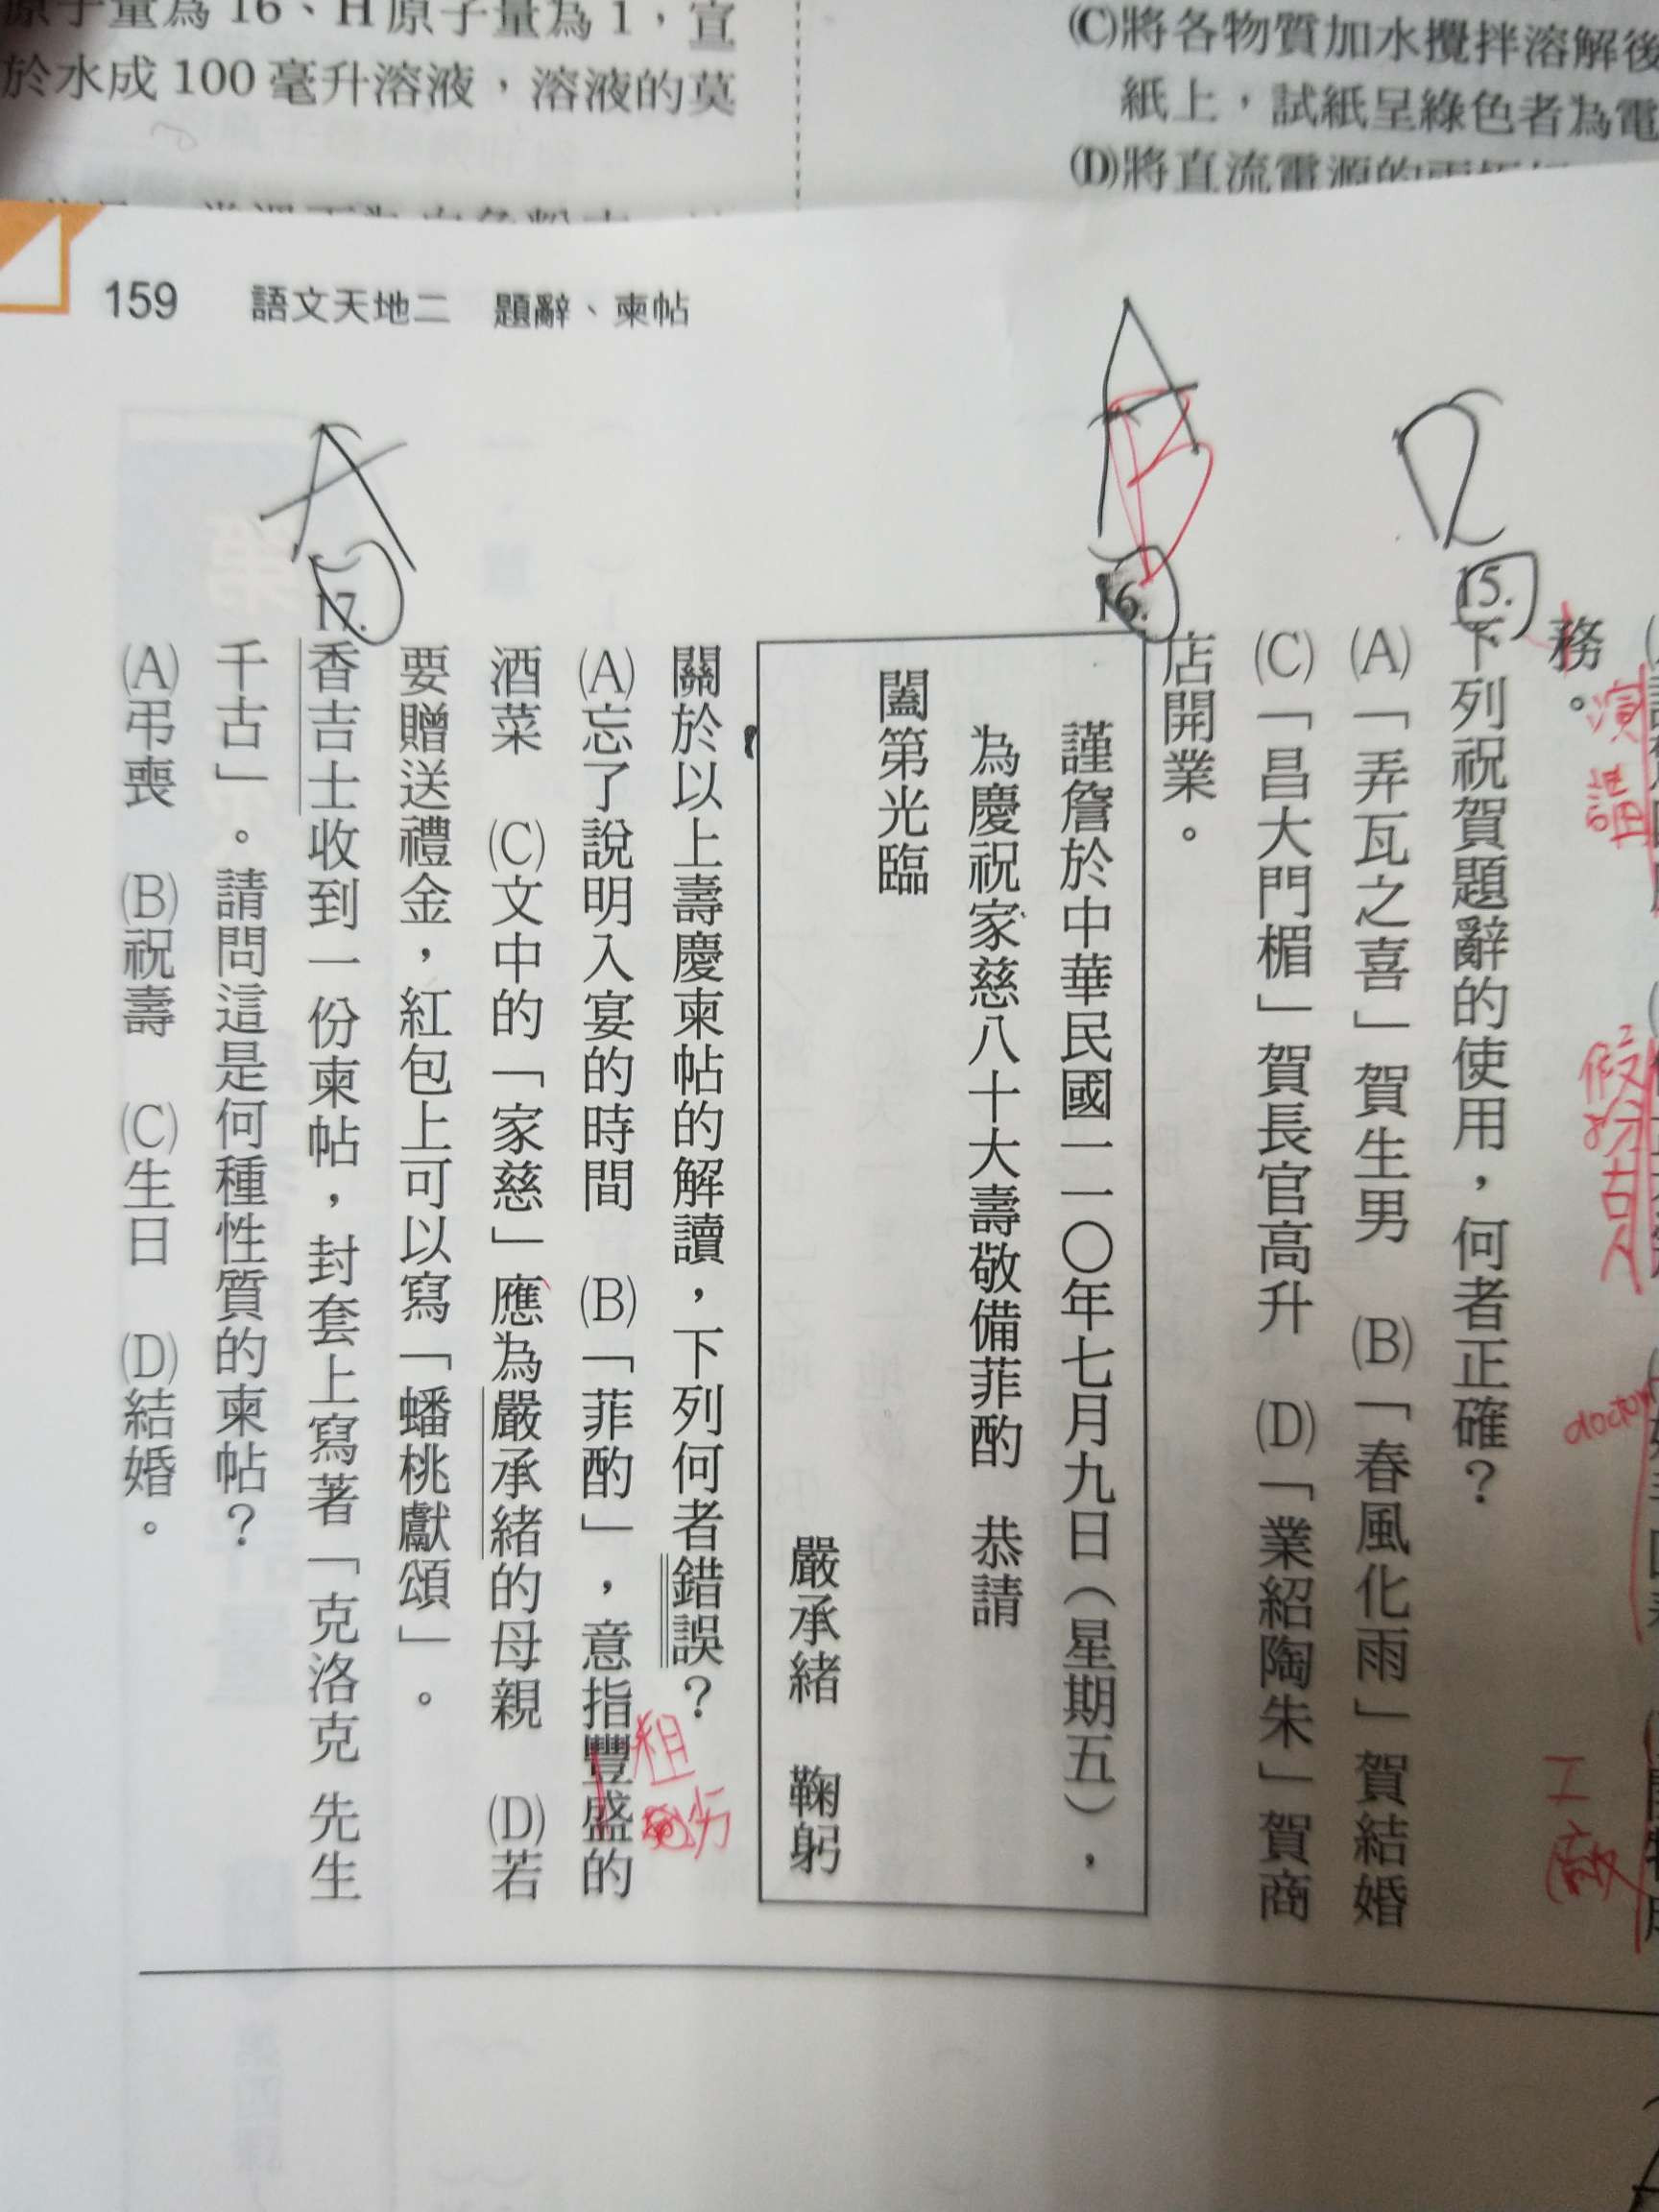 原子量為16、H原子量為1，宣
於水成100毫升溶液，溶液的莫
(C)將各物質加水攪拌溶解後
紙上，試紙呈綠色者為電
(D)將直流電源的兩
159 語文天地二 題辭、柬帖
務。
演講
假扮古人
doctor
工廠
D
15.下列祝賀題辭的使用，何者正確？
(A)「弄瓦之喜」賀生男 (B)「春風化雨」賀結婚
(C)「昌大門楣」賀長官高升 (D)「業紹陶朱」賀商
店開業。
A
B
16.
謹詹於中華民國一一〇年七月九日（星期五），
為慶祝家慈八十大壽敬備菲酌 恭請
闔第光臨
嚴承緒 鞠躬
關於以上壽慶柬帖的解讀，下列何者錯誤？
(A)忘了說明入宴的時間 (B)「菲酌」，意指豐盛的
粗劣
酒菜 (C)文中的「家慈」應為嚴承緒的母親 (D)若
要贈送禮金，紅包上可以寫「蟠桃獻頌」。
A
17.香吉士收到一份柬帖，封套上寫著「克洛克 先生
千古」。請問這是何種性質的柬帖？
(A)弔喪 (B)祝壽 (C)生日 (D)結婚。